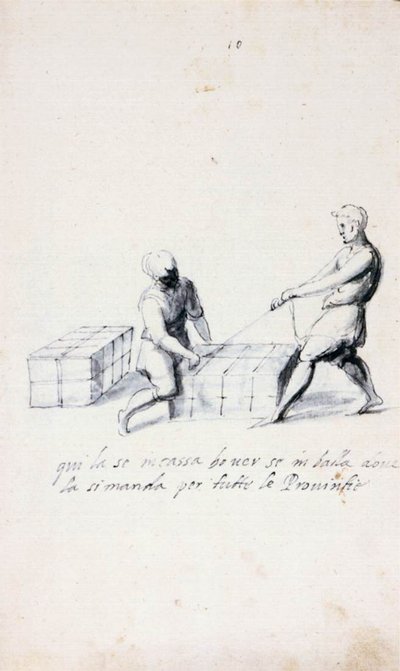 10
qui la se incassa hover se in balla a
la si manda per tutte le Provinsie